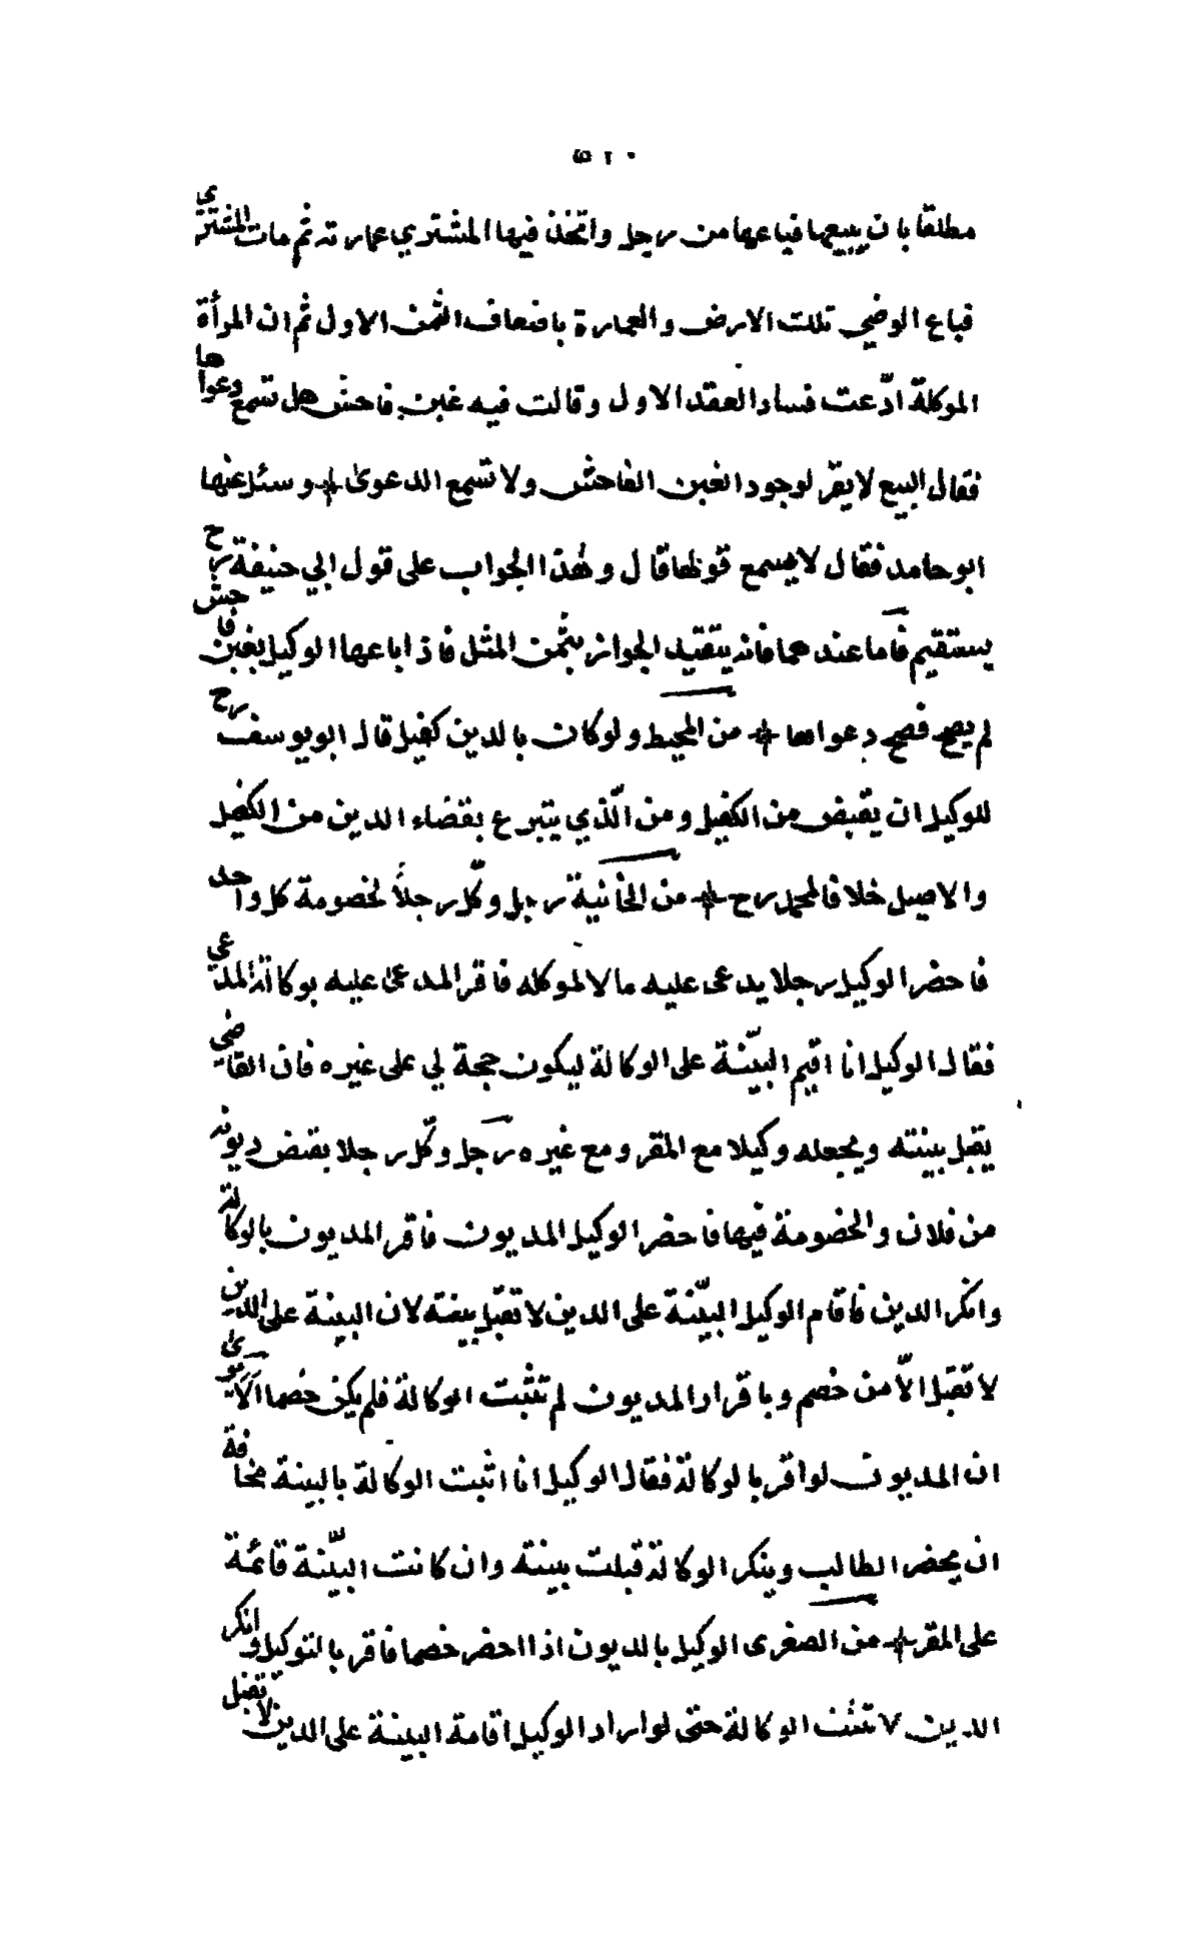 ٥٢٠
مطلقا بان يبيعها فباعها من رجل واتخذ فيها المشتري عمارته ثم مات المشتري
فباع الوصي تلك الارض والعمارة باضعاف الثمن الاول ثم ان المرأة
الموكلة ادّعت فساد العقد الاول وقالت فيه غبن فاحش هل تسمع دعواها
فقال البيع لا يقر لوجود الغبن الفاحش ولا تسمع الدعوى وسئل عنها
ابو حامد فقال لا يسمع قولها قال وهذا الجواب على قول ابي حنيفة رح
يستقيم فاما عندهما فانه يتقيد الجواز بثمن المثل فاذا باعها الوكيل بغبن فاحش
لم يصح فصح دعواها من المحيط ولو كان بالدين كفيل قال ابو يوسف رح
للوكيل ان يقبض من الكفيل ومن الّذي يتبرع بقضاء الدين من الكفيل
والاصيل خلافا لمحمد رح من الخانية رجل وكّل رجلاً لخصومة كل واحد
فاحضر الوكيل رجلا يدعى عليه مالا لموكله فاقر المدعى عليه بوكالة المدعي
فقال الوكيل انا اقيم البيّنة على الوكالة ليكون حجة لي على غيره فان القاضي
يقبل بينته ويجعله وكيلا مع المقر ومع غيره رجل وكّل رجلا بقبض ديونه
من فلان والخصومة فيها فاحضر الوكيل المديون فاقر المديون بالوكالة
وانكر الدين فاقام الوكيل البيّنة على الدين لا تقبل بينته لان البينة على الدين
لا تقبل الاّ من خصم وباقرار المديون لم تثبت الوكالة فلم يكن خصما الا يرى
ان المديون لو اقر بالوكالة فقال الوكيل انا اثبت الوكالة بالبينة مخافة
ان يحضر الطالب وينكر الوكالة قبلت بينته وان كانت البيّنة قائمة
على المقر من الصغرى الوكيل بالديون اذا احضر خصما فاقر بالتوكيل وانكر
الدين لا تثبت الوكالة حتى لو اراد الوكيل اقامة البينة على الدين لا تقبل